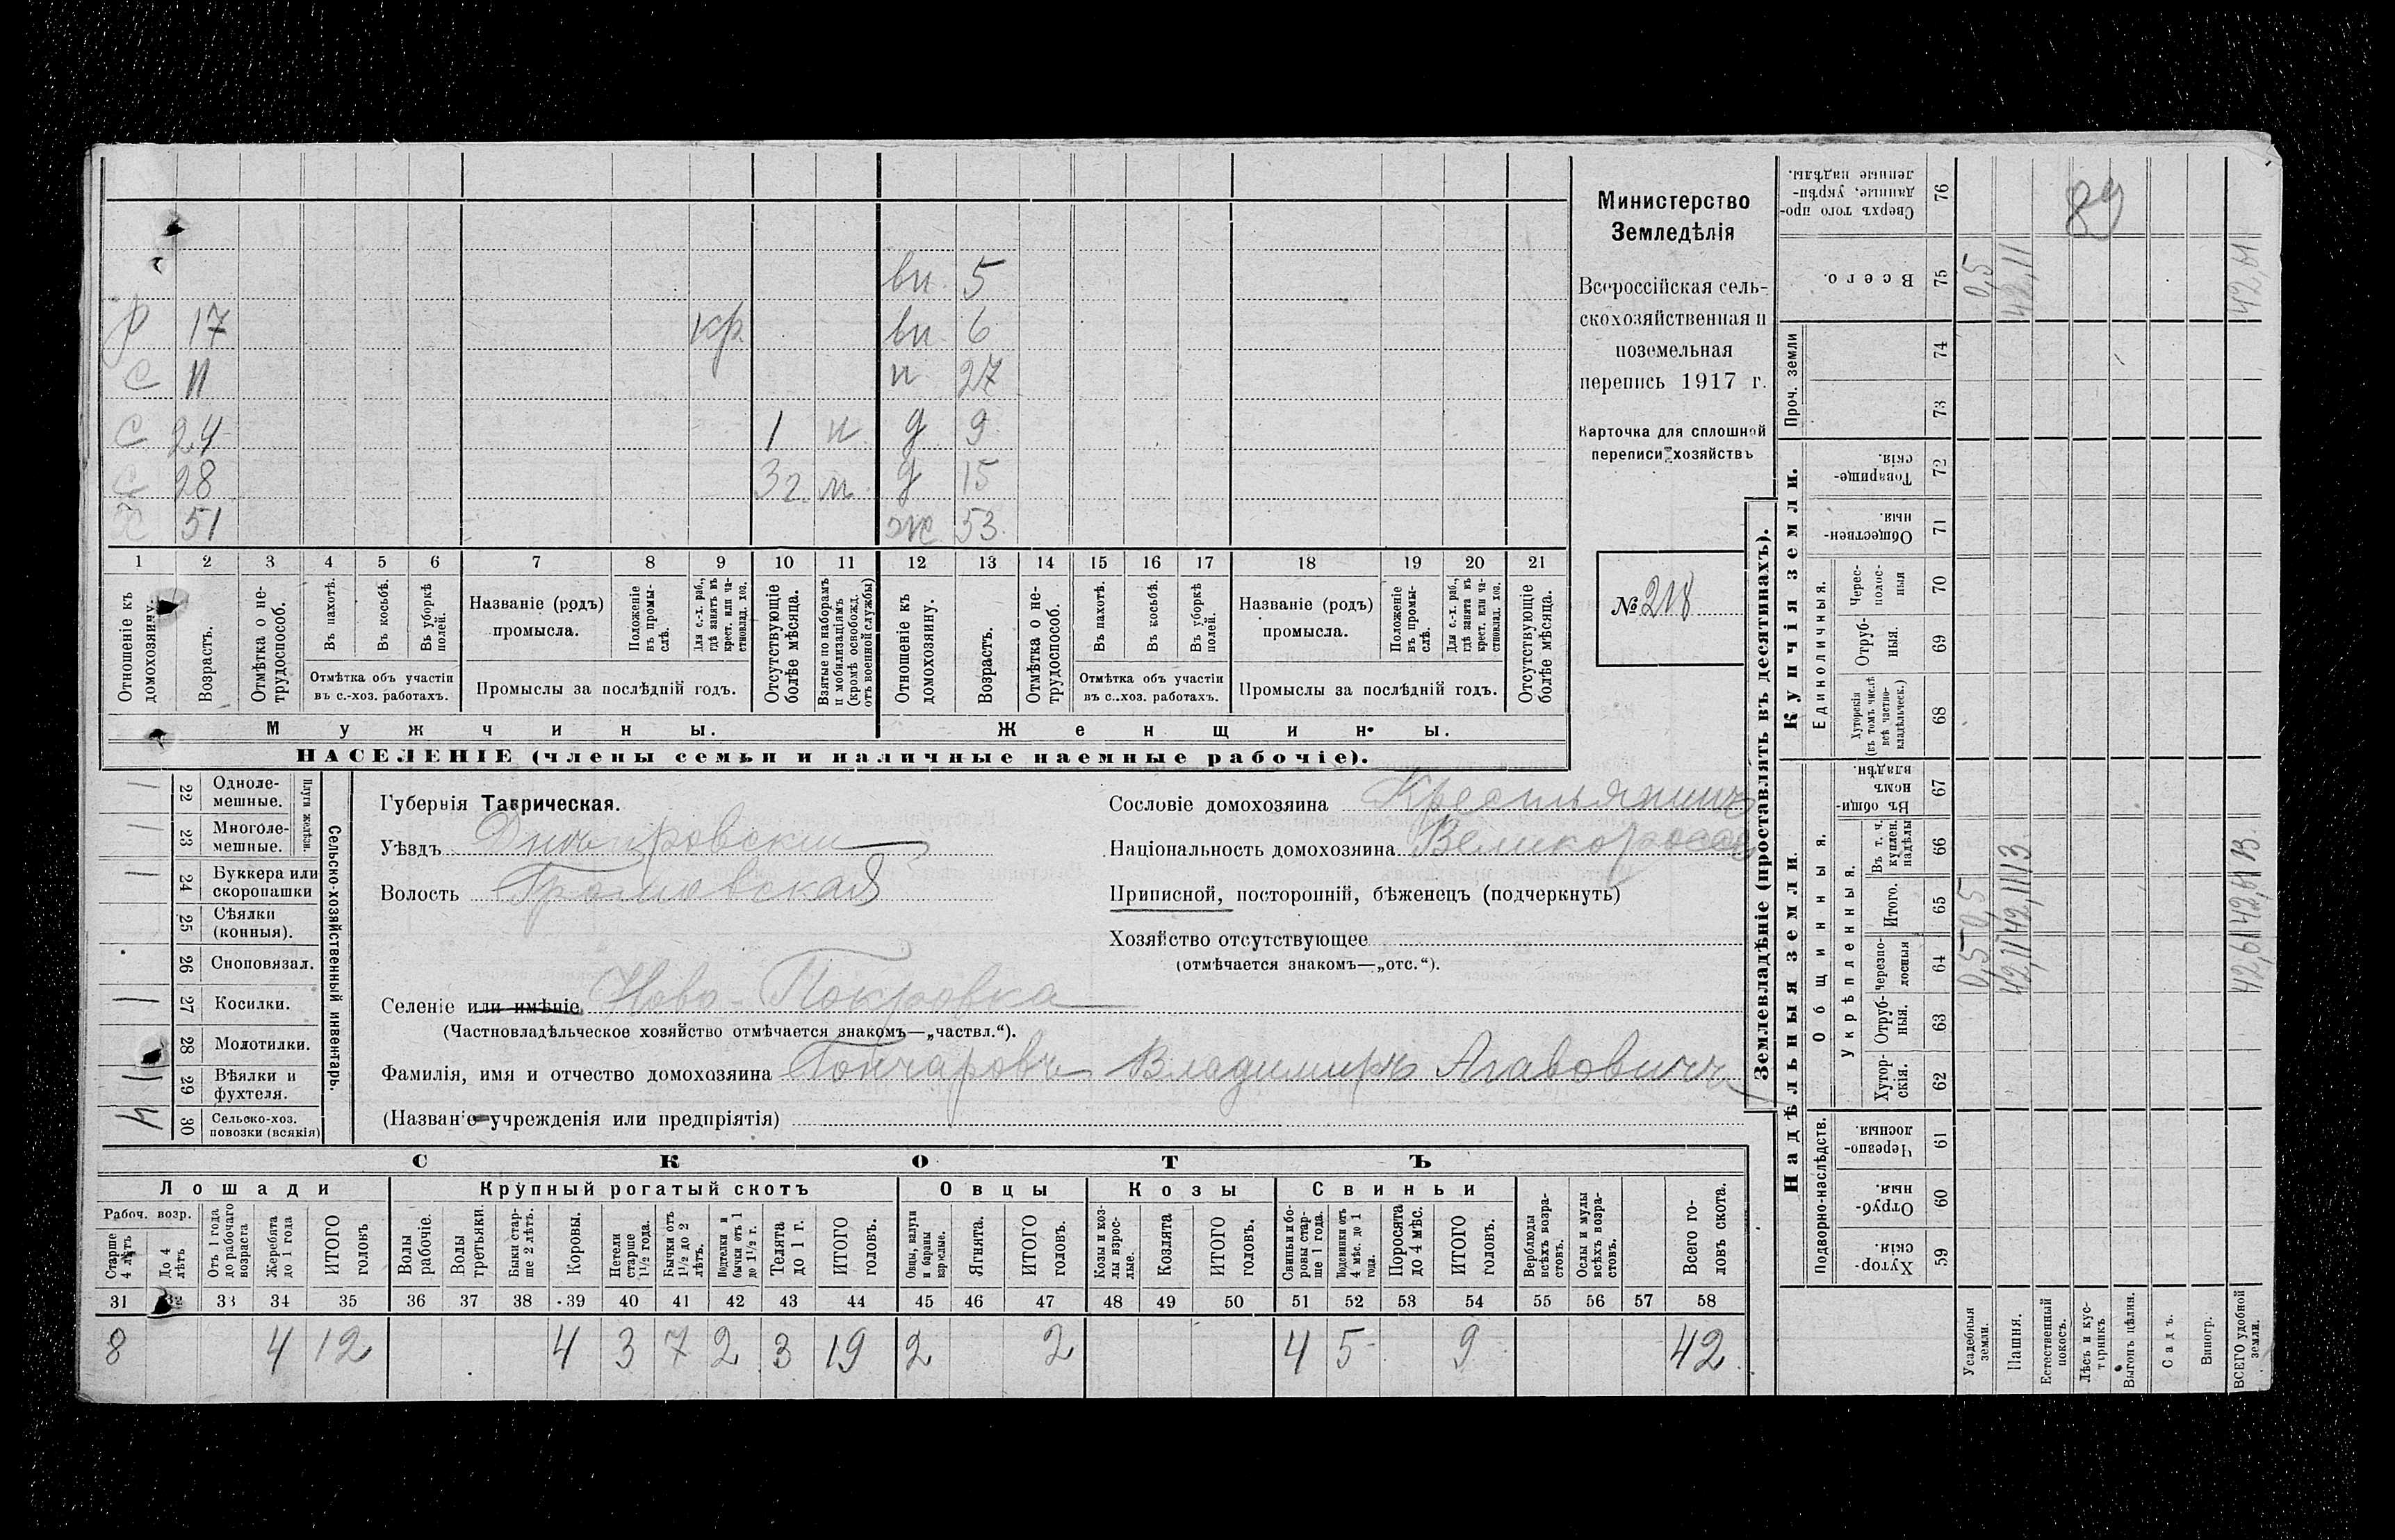 вн. 5
р 17 кр. вн. 6
с 11 н 27
с 24 1 н. д 9
с 28 3 г. м. д 15
Х 51 ж 53
1 2 3 4 5 6 7 8 9 10 11 12 13 14 15 16 17 18 19 20 21
Отношеніе къ домохозяину.
Возрастъ.
Отмѣтка о не-трудоспособ.
Въ пахотѣ.
Въ косьбѣ.
Въ уборкѣ полей.
Отмѣтка объ участіи
въ с.-хоз. работахъ.
Названіе (родъ)
промысла.
Положеніе въ промы-слѣ.
Для с.-х. раб., гдѣ занятъ въ крест. или ча-стновлад. хоз.
Промыслы за послѣдній годъ.
Отсутствующіе болѣе мѣсяца.
Взятые по наборамъ и мобилизаціямъ (кромѣ освобожд. отъ военной службы)
Отношеніе къ домохозяину.
Возрастъ.
Отмѣтка о не-трудоспособ.
Въ пахотѣ.
Въ косьбѣ.
Въ уборкѣ полей.
Отмѣтка объ участіи
въ с.-хоз. работахъ.
Названіе (родъ)
промысла.
Положеніе въ промы-слѣ.
Для с.-х. раб., гдѣ занята въ крест. или ча-стновлад. хоз.
Промыслы за послѣдній годъ.
Отсутствующіе болѣе мѣсяца.
Мужчины. Женщины.
НАСЕЛЕНІЕ (члены семьи и наличные наемные рабочіе).
Министерство
Земледѣлія
Всероссійская сель-
скохозяйственная и
поземельная
перепись 1917 г.
Карточка для сплошной
переписи хозяйствъ
№ 218
Сельско-хозяйственный инвентарь.
Плуги желѣзн.
22 Одноле-мешные. 1
23 Многоле-мешные. 1
24 Буккера или скоропашки 1
25 Сѣялки (конныя).
26 Сноповязал.
27 Косилки. 1
28 Молотилки.
29 Вѣялки и фухтеля. 1
30 Сельско-хоз. повозки (всякія) 4
Губернія Таврическая.
Уѣздъ Днѣпровскій
Волость Громовская
Селеніе или имѣніе Ново-Покровка
(Частновладѣльческое хозяйство отмѣчается знакомъ—„частвл.“).
Фамилія, имя и отчество домохозяина Гончаровъ Владимиръ Агавовичъ
(Названіе учрежденія или предпріятія)
Сословіе домохозяина Крестьянинъ
Національность домохозяина Великороссъ
Приписной, посторонній, бѣженецъ (подчеркнуть)
Хозяйство отсутствующее
(отмѣчается знакомъ—„отс.“).
СКОТЪ
Лошади Крупный рогатый скотъ Овцы Козы Свиньи
Рабоч. возр.
Старше 4 лѣтъ
До 4 лѣтъ
Отъ 1 года до рабочаго возраста
Жеребята до 1 года
ИТОГО головъ
Волы рабочіе.
Волы третьяки.
Быки стар-ше 2 лѣтъ.
Коровы.
Нетели старше 1½ года.
Бычки отъ 1½ до 2 лѣтъ.
Подтелки и бычки отъ 1 до 1½ г.
Телята до 1 г.
ИТОГО головъ.
Овцы, валухи и бараны взрослые.
Ягнята.
ИТОГО головъ.
Козы и коз-лы взрос-лые.
Козлята
ИТОГО головъ.
Свиньи и бо-ровы стар-ше 1 года.
Подсвинки отъ 4 мѣс. до 1 года.
Поросята до 4 мѣс.
ИТОГО головъ.
Верблюды всѣхъ возра-стовъ.
Ослы и мулы всѣхъ возра-стовъ.
Всего го-ловъ скота.
31 32 33 34 35 36 37 38 39 40 41 42 43 44 45 46 47 48 49 50 51 52 53 54 55 56 57 58
8 4 12 4 3 7 2 3 19 2 2 4 5 9 42
Землевладѣніе (проставлять въ десятинахъ).
Надѣльныя земли.
Купчія земли.
Проч. земли
Подворно-наслѣдств.
Общинныя.
Укрѣпленныя.
Единоличныя.
59 Хутор-скія.
60 Отруб-ныя.
61 Черезпо-лосныя.
62 Хутор-скія.
63 Отруб-ныя.
64 черезпо-лосныя
65 Итого.
66 Въ т. ч. куплен. надѣлы
67 Въ общи-номъ владѣн.
68 Хуторскія (въ томъ числѣ всѣ частно-владѣльческ.)
69 Отруб-ныя.
70 Черес-полос-ныя
71 Обществен-ныя.
72 Товарище-скія.
73
74
75 Всего.
76 Сверхъ того про-данные, укрѣп-ленные надѣлы.
Усадебныя земли. 0,5 0,5 0,5
Пашня. 42,11 42,11 13 42,11
Естественный покосъ.
Лѣсъ и кус-тарникъ
Выгонъ цѣлин.
Садъ.
Виногр.
ВСЕГО удобной земли. 42,61 42,61 13. 42,61
89